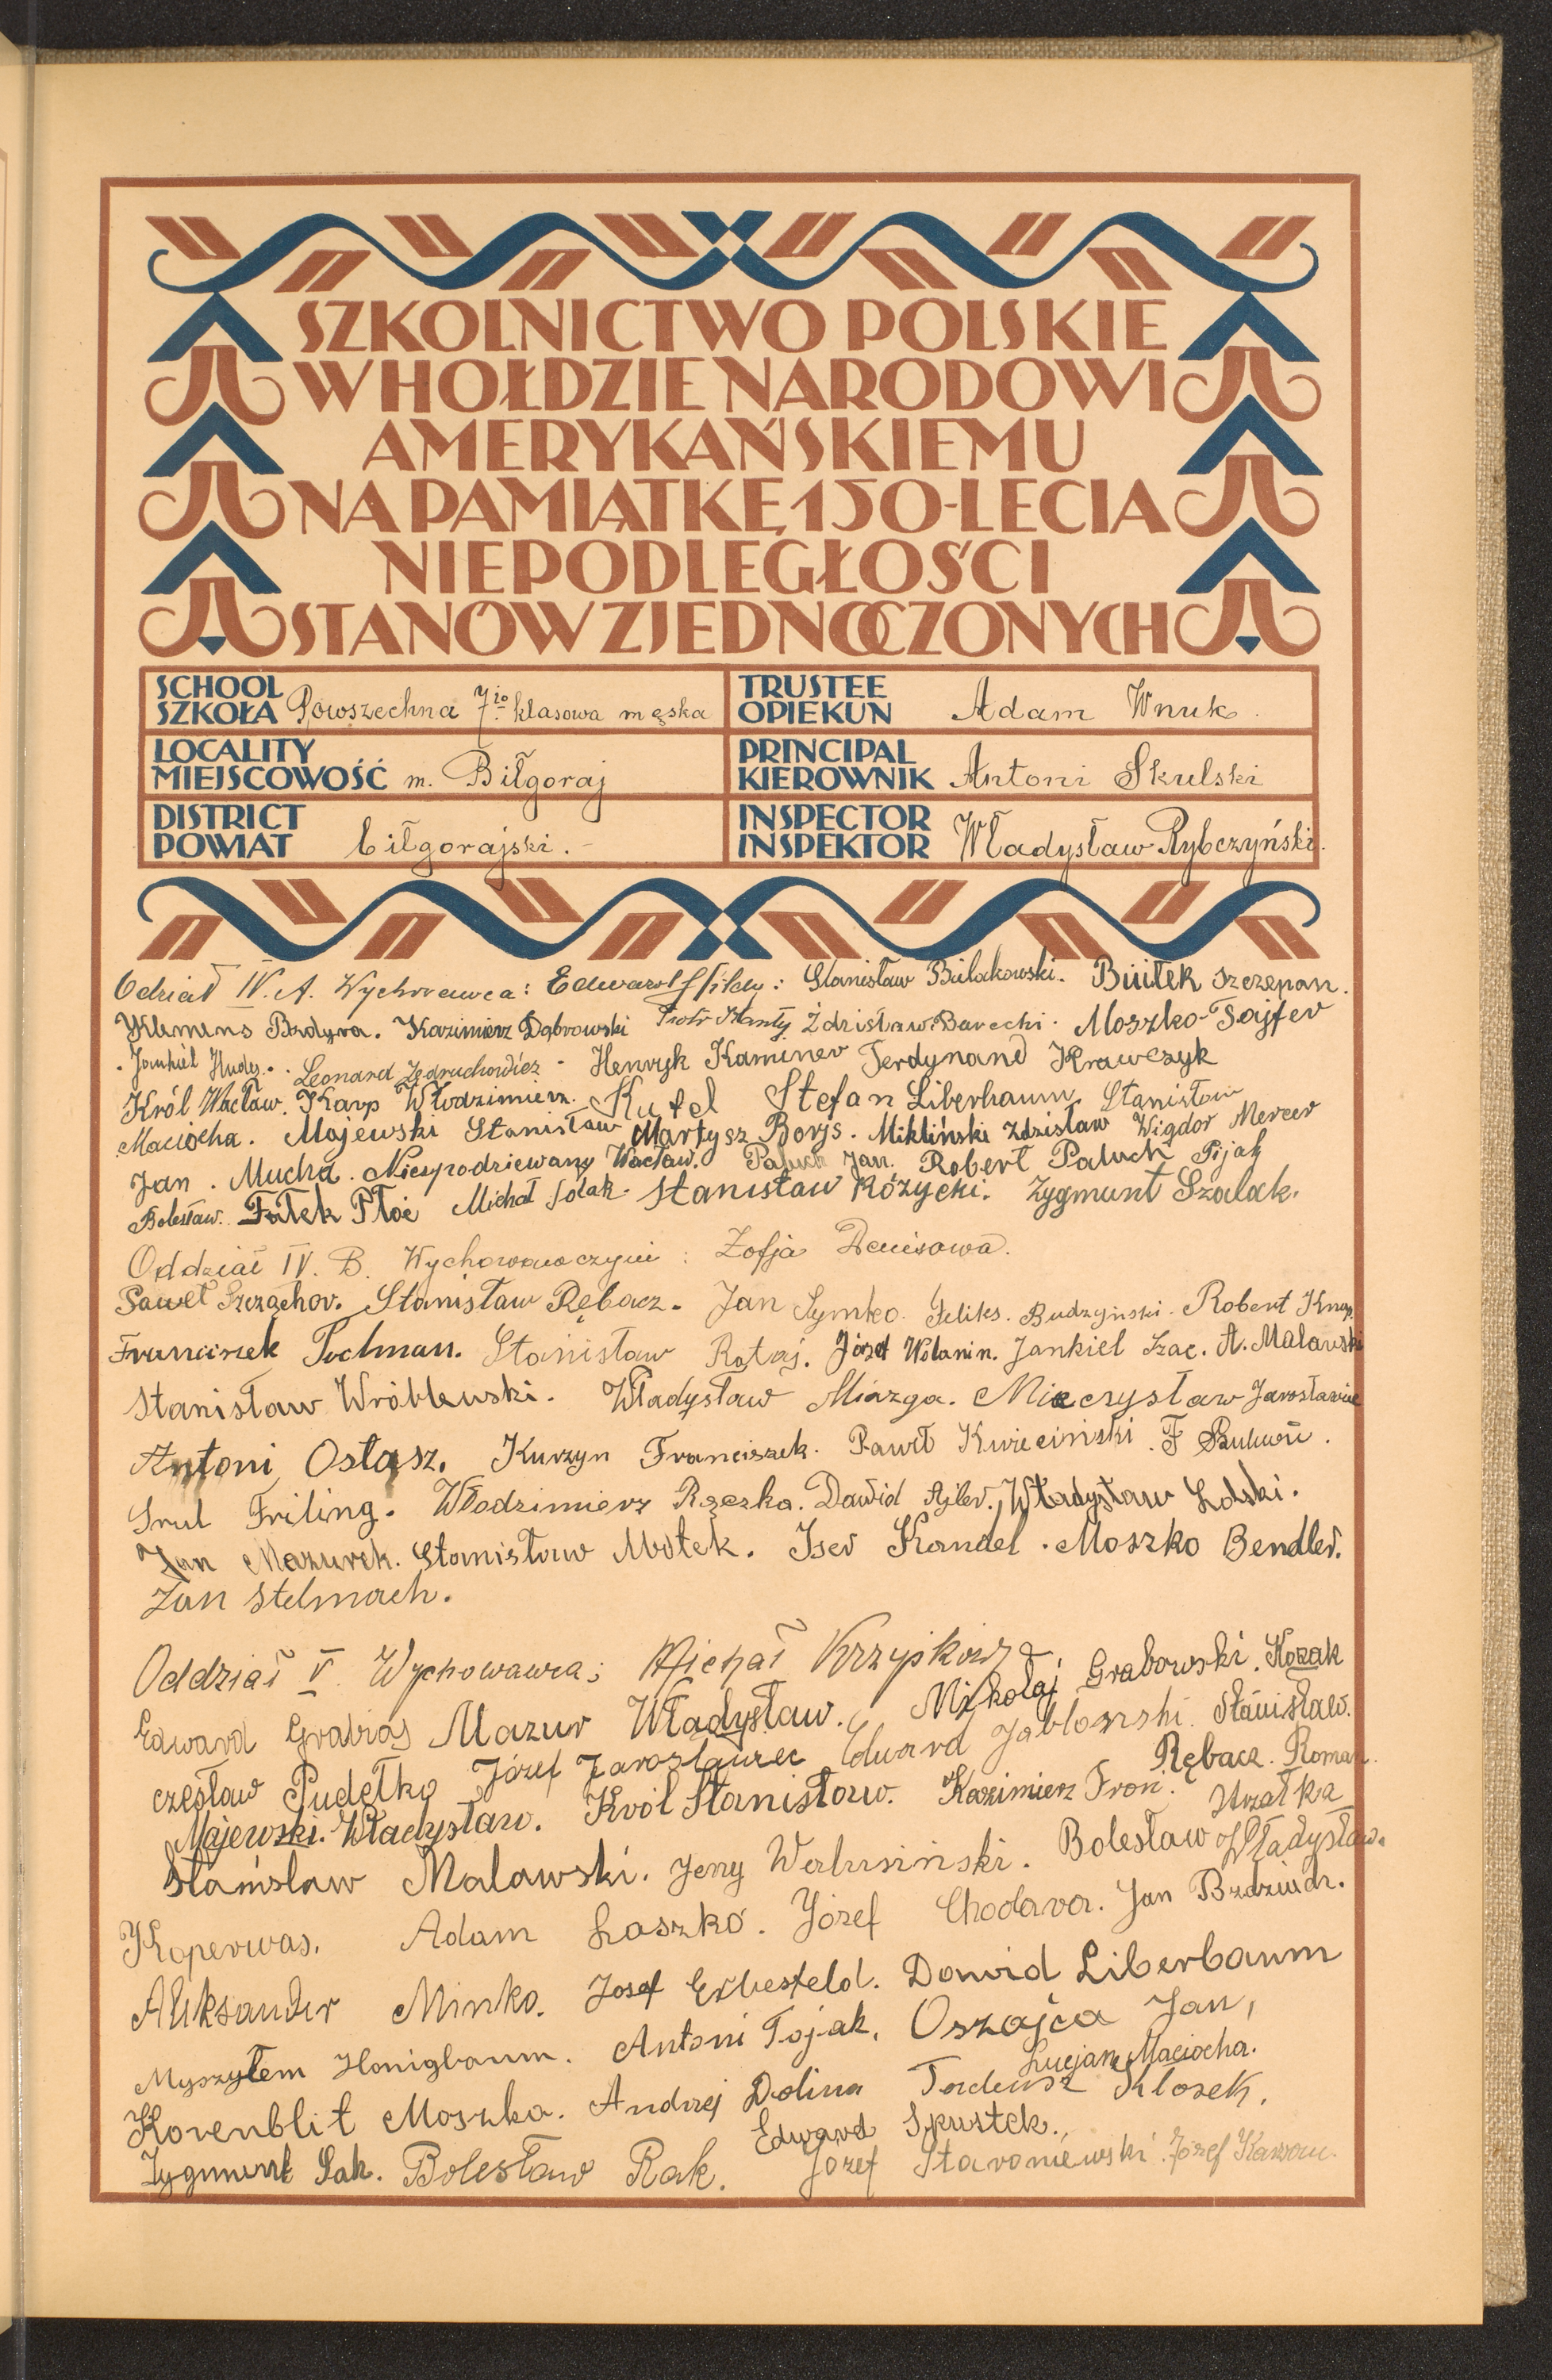 SZKOLNICTWO POLSKIE
W HOŁDZIE NARODOWI
AMERYKAŃSKIEMU
NA PAMIĄTKĘ 150-LECIA
NIEPODLEGŁOŚCI
STANÓW ZJEDNOCZONYCH
SCHOOL
SZKOŁA Powszechna 7io klasowa męska
TRUSTEE
OPIEKUN Adam Wnuk
LOCALITY
MIEJSCOWOŚĆ m. Biłgoraj
PRINCIPAL
KIEROWNIK Antoni Skulski
DISTRICT
POWIAT biłgorajski.
INSPECTOR
INSPEKTOR Władysław Rybczyński.
Odział IV. A. Wychowawca: Edward : Stanisław Bielakowski. Szczepan.
Klemens Bzdyra. Kazimierz Dąbrowski Piotr Zdzisław Barecki. Moszko Fajfer
Jankiel Hudes. Leonard Jędruchowicz - Henryk Kaminer Ferdynand Krawczyk
Król Wacław. Karp Włodzimierz. Kutel Stefan Liberbaum Stanisław
Maciocha. Majewski Stanisław Martysz Borys. Mikliński Zdzisław Wigdor Mercer
Jan. Mucha. Niespodziewany Wacław. Paluch Jan. Robert Paluch Pijak
Bolesław. Fałek Płoć Michał Solak. Stanisław Różycki. Zygmunt Szalak.
Oddział IV. B. Wychowawczyni: Zofja Denisowa.
Paweł Szrząchor. Stanisław Rębacz. Jan Symko. Feliks. Budzyński. Robert Knap.
Franciszek Tochman. Stanisław Rataj. Józef Wolanin. Jankiel Szac. A. Malawski
Stanisław Wróblewski. Władysław Miazga. Mieczysław Jarosławiec
Antoni Ostasz. Kurzyn Franciszek. Paweł Kwieciński. F
Srul Friling. Włodzimierz Rączka. Dawid Ajler. Władysław Lolski.
Jan Mazurek. Stanisław Motek. Iser Kandel. Moszko Bendler.
Jan Stelmach.
Oddział V Wychowawca: Michał
Edward Grabias Mazur Władysław. Mikołaj Grabowski. Kozak
czesław Pudełko Józef Jarosławiec Edward Jabłoński. Stanisław.
Majewski. Władysław. Król Stanisław. Kazimierz Froń. Rębacz. Roman.
Stanisław Malawski. Jerzy Walusiński. Bolesław Strzałka Władysław.
Koperwas. Adam Łaszko. Józef Chodara. Jan Bździuch.
Aleksander Minko. Josef Erbesfeld. Dawid Liberbaum
Myszytem Honigbaum. Antoni Pojak. Oszajca Jan,
Korenblit Moszko. Andrzej Dolina Tadeusz Kłosek. Lucjan Maciocha.
Zygmunt Sak. Bolesław Rak. Edward Spustek. Józef Staroniewski. Józef